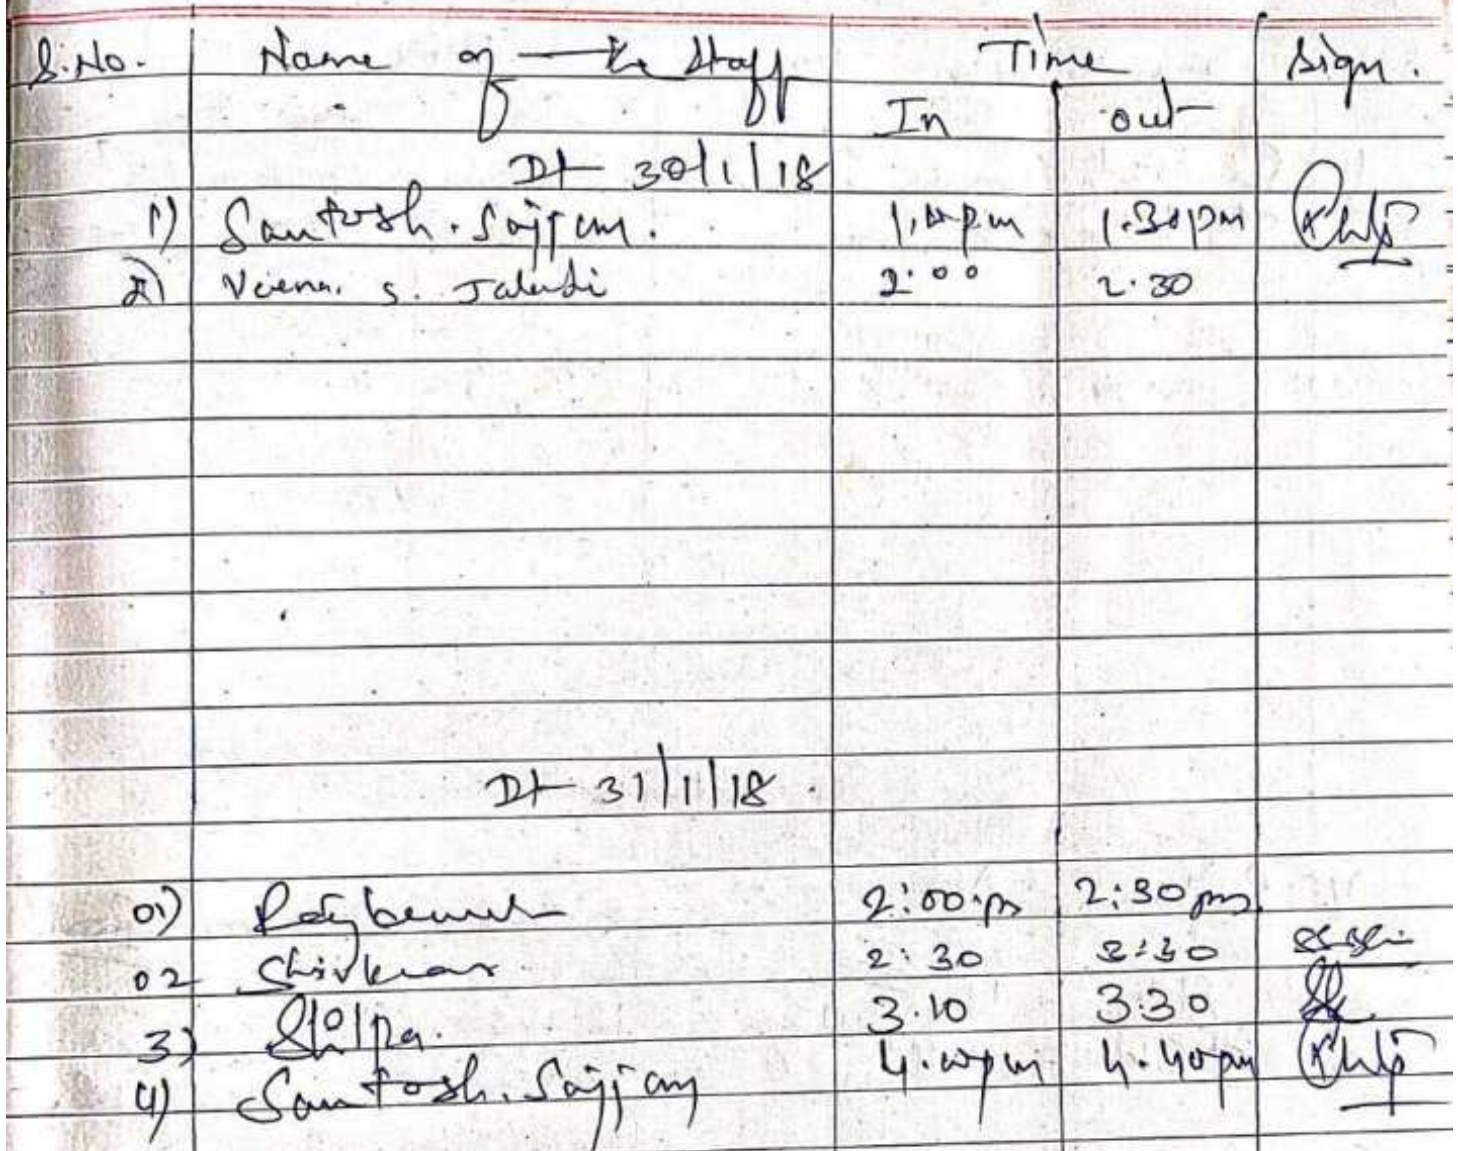 S.No. Name of the Staff Time Sign.
In out
Dt 30/1/18
1) Santosh. Sajjan. 1.00pm 1.30pm
2) Veena. S. Jaladi 2:00 2.30
Dt 31/1/18.
01) 2:00.pm 2:30pm
02 Shivkumar 2:30 3:30
3) Shilpa. 3.10 3.30
4) Santosh. Sajjan 4.00pm 4.40pm